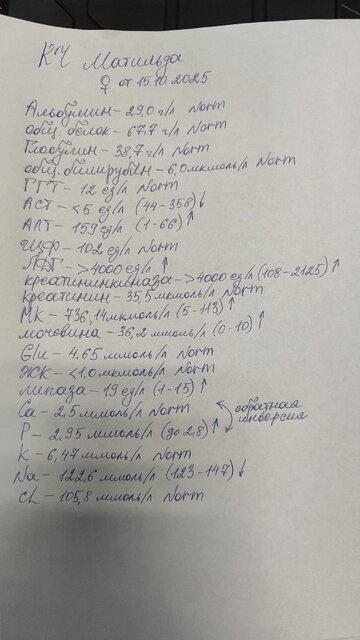 КЧ Матильда
♀ от 15.10.2025
Альбумин – 29,0 г/л Norm
общ. белок – 67.7 г/л Norm
Глобулин – 38,7 г/л Norm
общ. билирубин – 6,0 мкмоль/л Norm
ГГТ – 12 ед/л Norm
АСТ – <5 ед/л (44-358)↓
АЛТ – 159 ед/л (1-66)↑
ЩФ – 102 ед/л Norm
ЛДГ – >4000 ед/л ↑
креатининкиназа – >4000 ед/л (108-2125)↑
креатинин – 35,5 мкмоль/л Norm
МК – 736,14 мкмоль/л (5-113)↑
мочевина – 36,2 ммоль/л (0-10)↑
Glu – 4.65 ммоль/л Norm
ЖК – <1,0 мкмоль/л Norm
липаза – 19 ед/л (1-15)↑
Ca – 2,5 ммоль/л Norm
обратная инверсия
P – 2,95 ммоль/л (до 2,8)↑
K – 6,47 ммоль/л Norm
Na – 122,6 ммоль/л (123-147)↓
Cl – 105,8 ммоль/л Norm